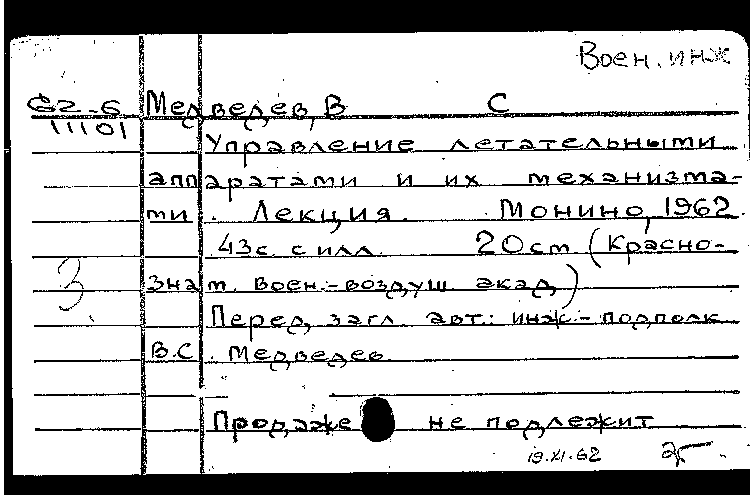 Воен. инж
62-6 Медведев, В С
11101
Управление летательными
аппаратами и их механизма-
ми. Лекция. Монино, 1962.
43с. с илл. 20см (Красно-
3 знам. воен.-воздуш. акад.)
Перед загл. авт.: инж.-подполк.
В.С. Медведев.
Продаже не подлежит
19.XI.62